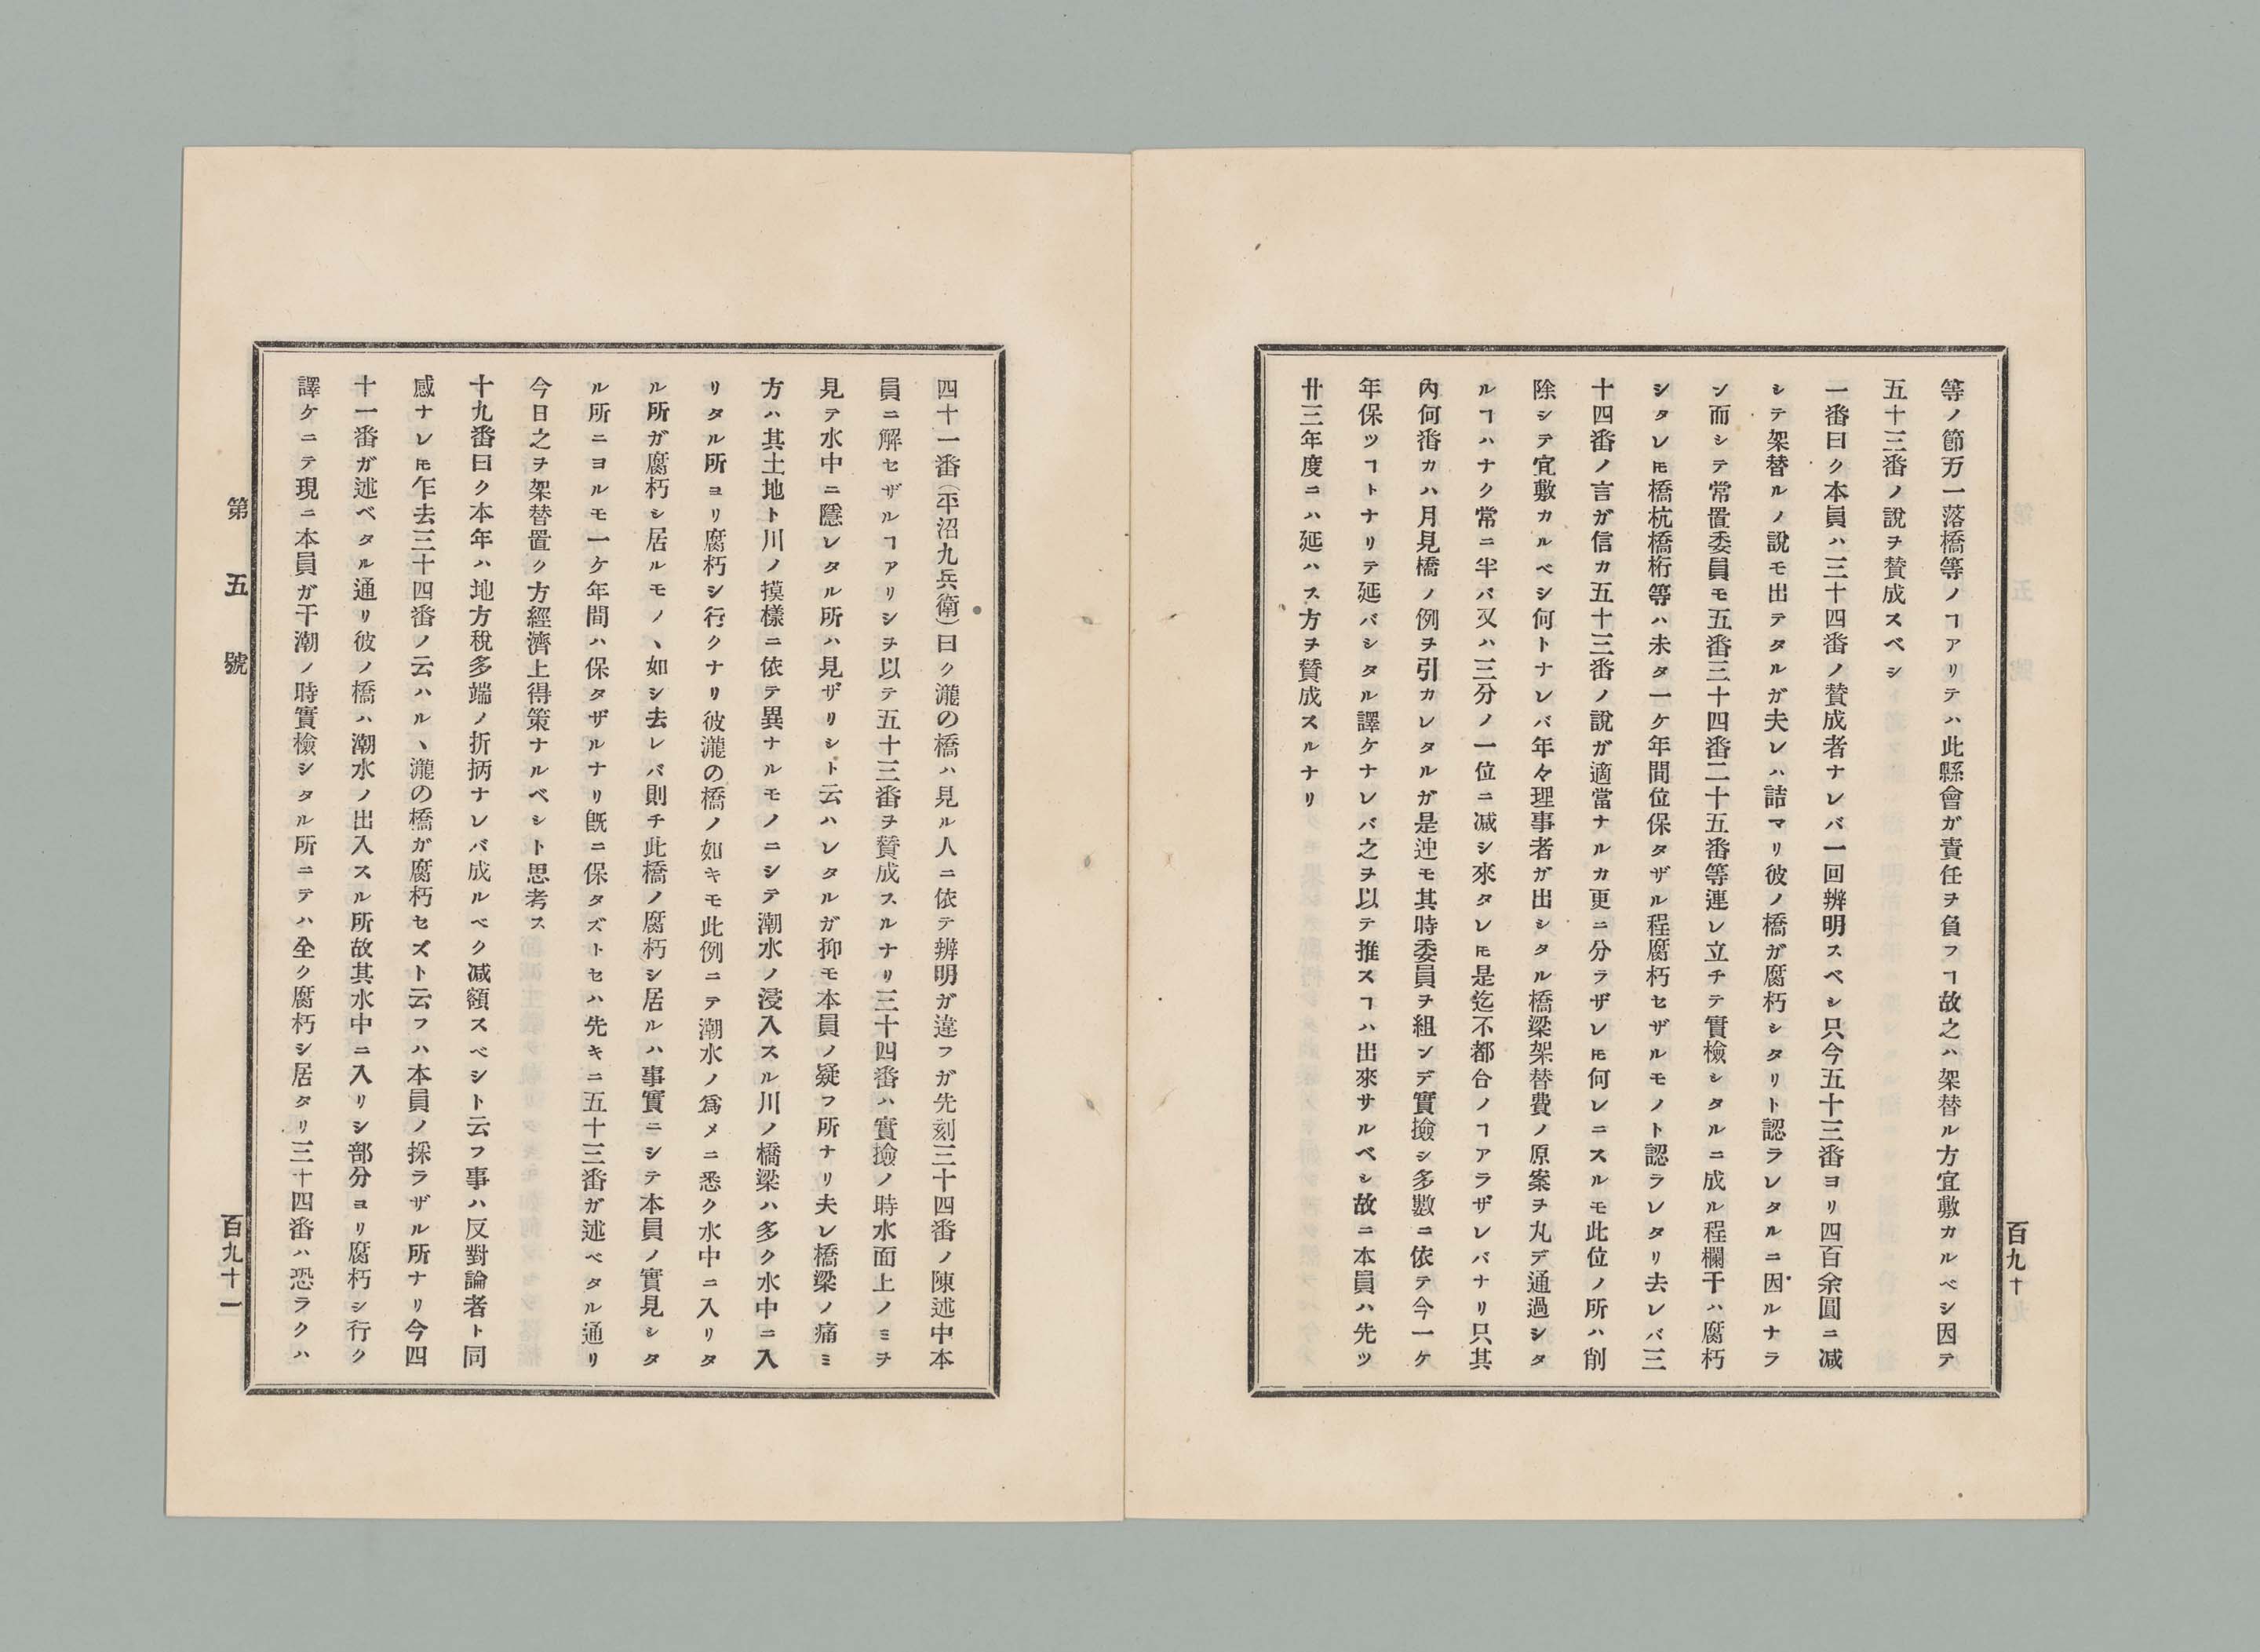 百九十
等ノ節万一落橋等ノヿアリテハ此縣會ガ責任ヲ負フヿ故之ハ架替ル方宜敷カルベシ因テ
五十三番ノ說ヲ賛成スベシ
一番曰ク本員ハ三十四番ノ賛成者ナレバ一回辨明スベシ只今五十三番ヨリ四百余圓ニ减
シテ架替ルノ說モ出テタルガ夫レハ詰マリ彼ノ橋ガ腐朽シタリト認ラレタルニ因ルナラ
ン而シテ常置委員モ五番三十四番二十五番等連レ立チテ實檢シタルニ成ル程欄干ハ腐朽
シタレ𪜈橋杭橋桁等ハ未タ一ケ年間位保タザル程腐朽セザルモノト認ラレタリ去レバ三
十四番ノ言ガ信カ五十三番ノ說ガ適當ナルカ更ニ分ラザレ𪜈何レニスルモ此位ノ所ハ削
除シテ宜敷カルベシ何トナレバ年々理事者ガ出シタル橋梁架替費ノ原案ヲ丸デ通過シタ
ルヿハナク常ニ半バ又ハ三分ノ一位ニ减シ來タレ𪜈是迄不都合ノヿアラザレバナリ只其
內何番カハ月見橋ノ例ヲ引カレタルガ是迚モ其時委員ヲ組ンデ實撿シ多數ニ依テ今一ケ
年保ツヿトナリテ延バシタル譯ケナレバ之ヲ以テ推スヿハ出來サルベシ故ニ本員ハ先ツ
廿三年度ニハ延ハス方ヲ賛成スルナリ
四十一番(平沼九兵衛)曰ク瀧の橋ハ見ル人ニ依テ辨明ガ違フガ先刻三十四番ノ陳述中本
員ニ解セザルヿアリシヲ以テ五十三番ヲ賛成スルナリ三十四番ハ實撿ノ時水面上ノミヲ
見テ水中ニ隱レタル所ハ見ザリシト云ハレタルガ抑モ本員ノ疑フ所ナリ夫レ橋梁ノ痛ミ
方ハ其土地ト川ノ摸樣ニ依テ異ナルモノニシテ潮水ノ浸入スル川ノ橋梁ハ多ク水中ニ入
リタル所ヨリ腐朽シ行クナリ彼瀧の橋ノ如キモ此例ニテ潮水ノ爲メニ悉ク水中ニ入リタ
ル所ガ腐朽シ居ルモノヽ如シ去レバ則チ此橋ノ腐朽シ居ルハ事實ニシテ本員ノ實見シタ
ル所ニヨルモ一ケ年間ハ保タザルナリ旣ニ保タズトセハ先キニ五十三番ガ述ベタル通リ
今日之ヲ架替置ク方經濟上得策ナルベシト思考ス
十九番曰ク本年ハ地方稅多端ノ折抦ナレバ成ルベク减額スベシト云フ事ハ反對論者ト同
感ナレ𪜈乍去三十四番ノ云ハルヽ瀧の橋ガ腐朽セズト云フハ本員ノ採ラザル所ナリ今四
十一番ガ述ベタル通リ彼ノ橋ハ潮水ノ出入スル所故其水中ニ入リシ部分ヨリ腐朽シ行ク
譯ケニテ現ニ本員ガ干潮ノ時實檢シタル所ニテハ全ク腐朽シ居タリ三十四番ハ恐ラクハ
第五號
百九十一